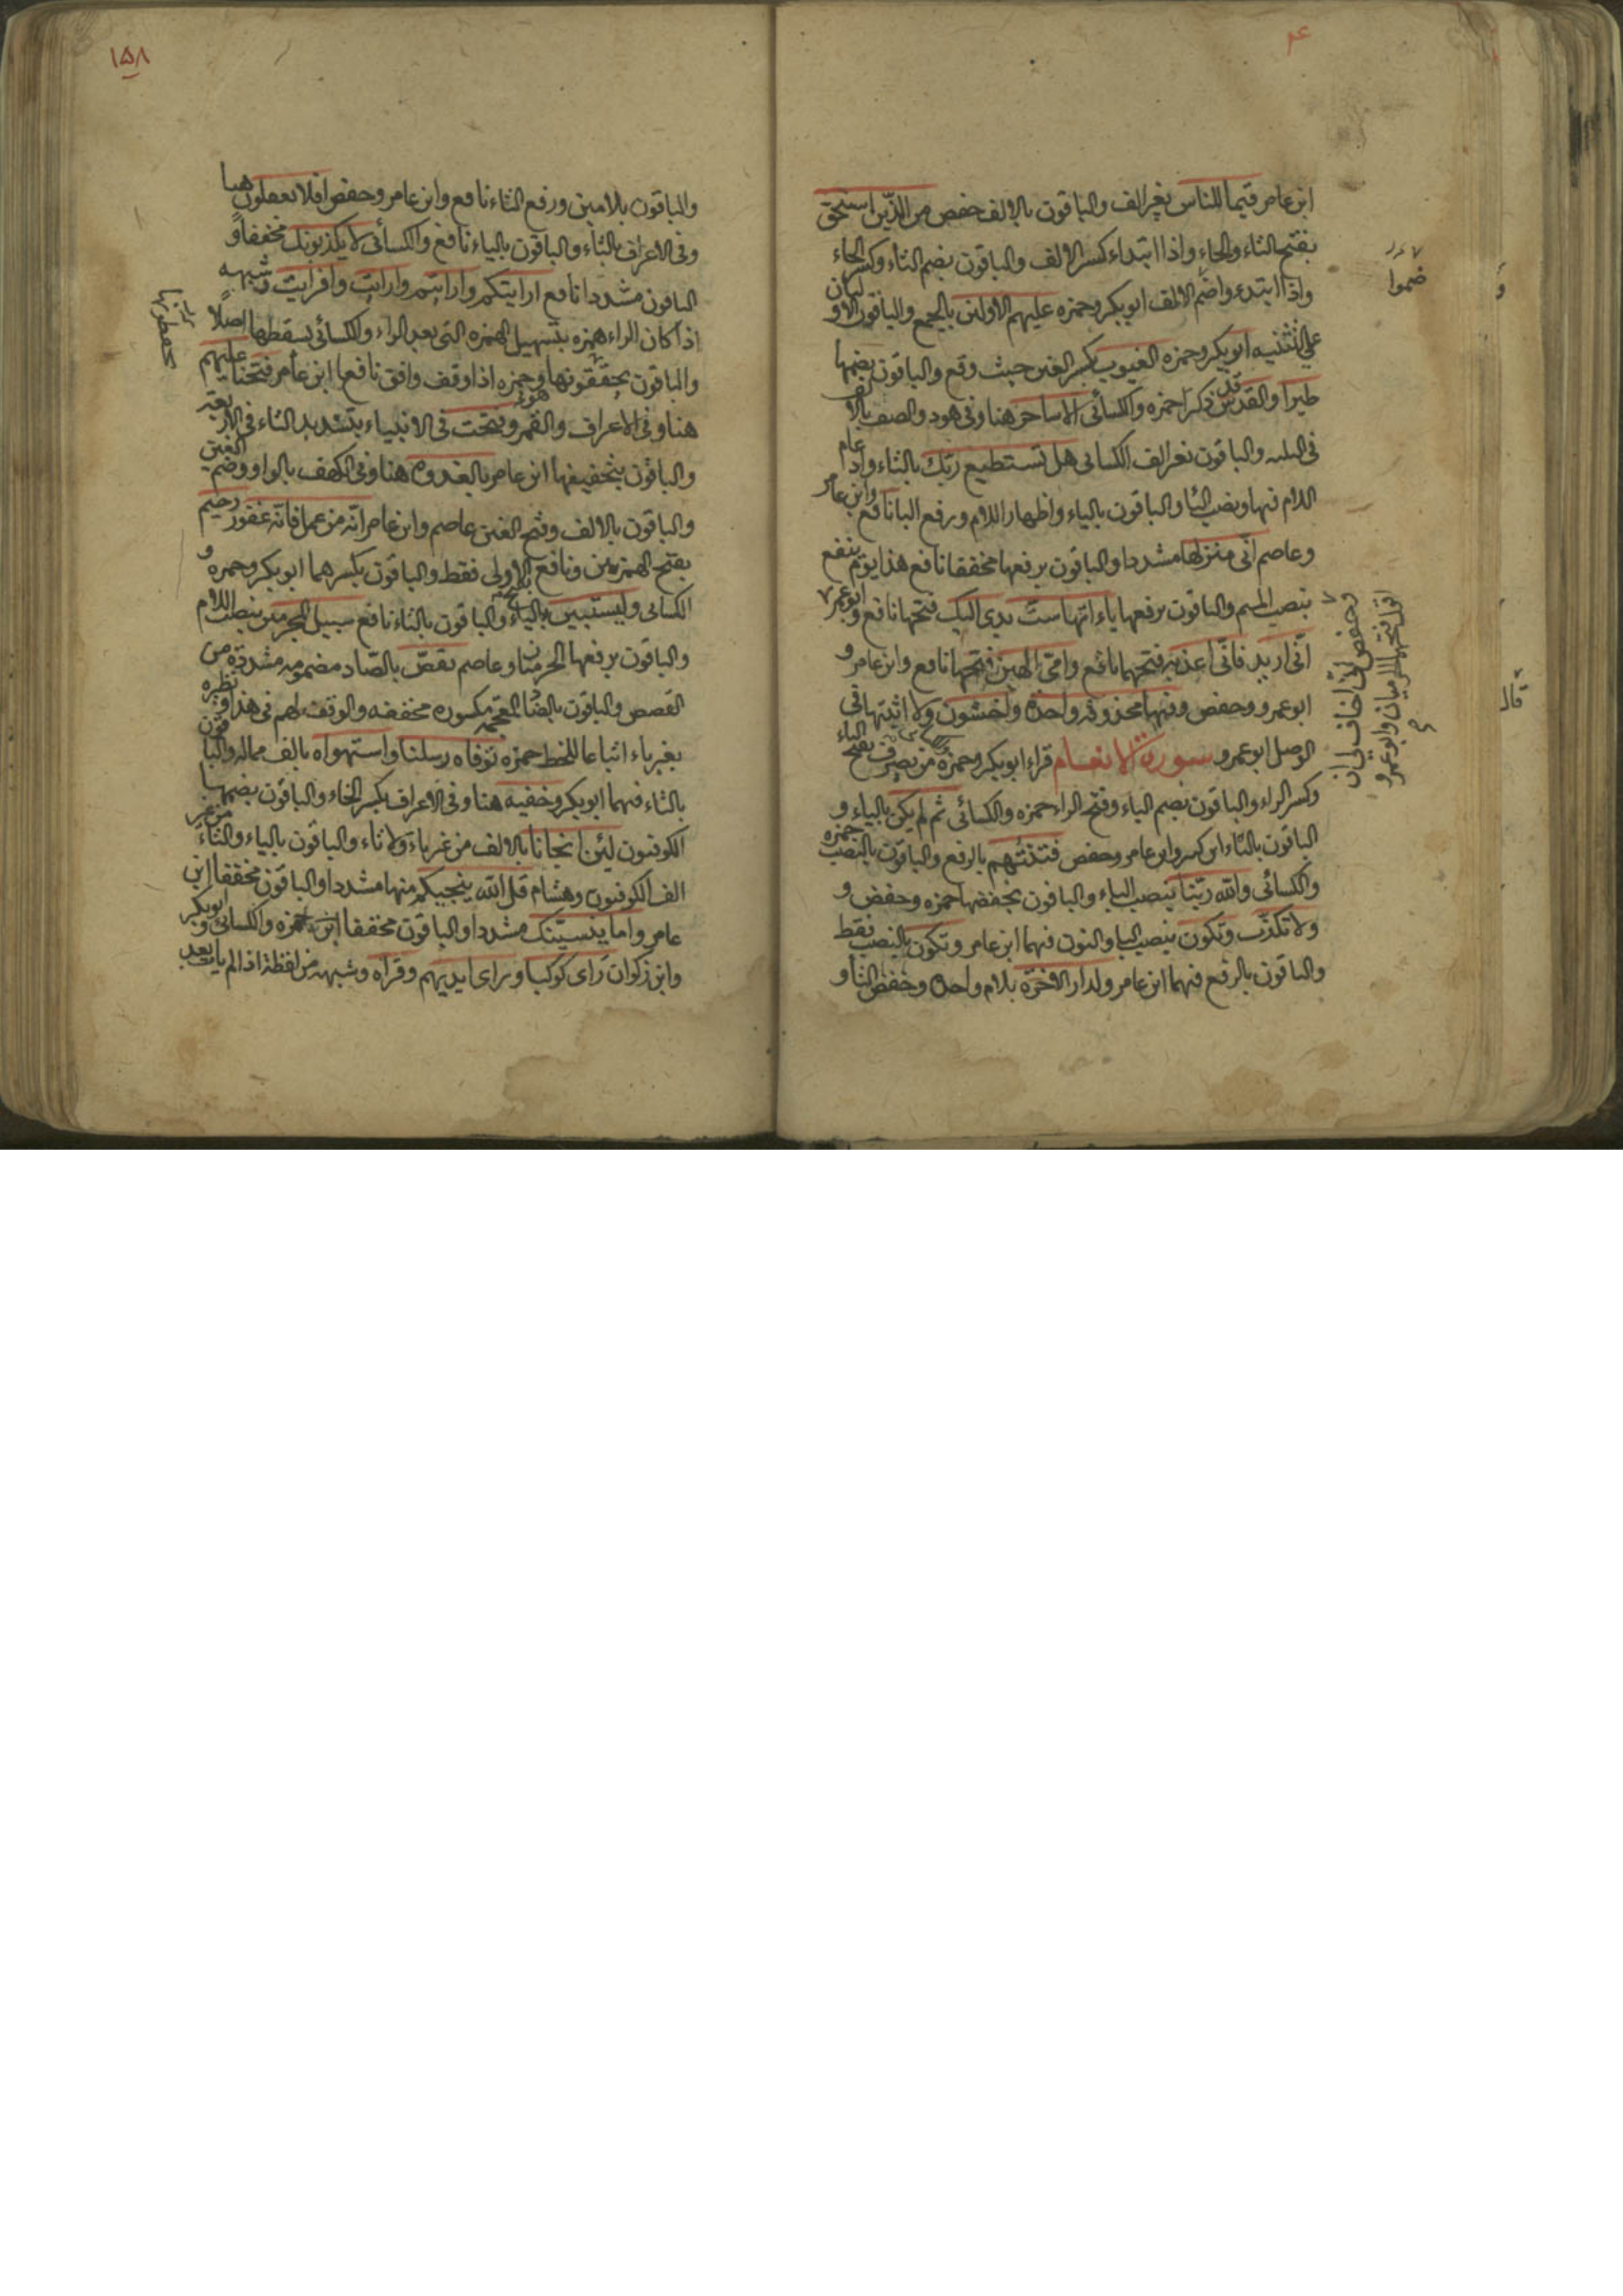 ابن عامر قيما للناس بغير الف والباقون بالالف حفص من الذين استحق
بفتح التاء والحاء واذا ابتداء كسر الالف والباقون بضم التاء وكسر الحاء
واذا ابتدءوا ضم الالف ابوبكر وحمزه عليهم الاولين بالجمع والباقون الاوليان
على التثنيه ابوبكر وحمزه الغيوب بكسر الغين حيث وقع والباقون بضمها
طيرا والقدس قد ذكرا حمزه والكسائى الا ساحر هنا وفى هود والصف بالالف
فى الثلثه والباقون بغير الف الكسائى هل تستطيع ربك بالتاء وادغام
اللام فيها ونصب البا والباقون بالياء واظهار اللام ورفع البا نافع وابن عامر
وعاصم انى منزلها مشددا والباقون برفعها مخففا نافع هذا يوم ينفع
بنصب الميم والباقون برفعها ياءاتها ست يدى اليك فتحها نافع وابوعمرو
انى اريد فانى اعذبه فتحهما نافع وامى الهين فتحها نافع وابن عامر و
ابوعمرو وحفص وفيها محذوفه واحدة واخشون ولا اثبتها فى
الوصل ابوعمرو سورة الانعام قراء ابوبكر وحمزه والكسائى من يصرف بفتح الياء
وكسر الراء والباقون بضم الياء وفتح الراء حمزه والكسائى ثم لم يكن بالياء و
الباقون بالتاء ابن كثير وابن عامر وحفص فتنتهم بالرفع والباقون بالنصب حمزه
والكسائى والله ربنا بنصب الباء والباقون بخفضها حمزه وحفص و
ولا نكذب ونكون بنصب البا والنون فيهما ابن عامر ونكون بالنصب فقط
والباقون بالرفع فيهما ابن عامر ولدار الاخرة بلام واحدة وخفض التا و
ضموا
وحفص لى ان اخاف لى ان
اقول فتحهما الحرميان وابوعمرو
قال
١٥٨
والباقون بلامين ورفع التاء نافع وابن عامر وحفص افلا تعقلون هنا
وفى الاعراف بالتاء والباقون بالياء نافع والكسائى لا يكذبونك مخففا و
الباقون مشددا نافع ارايتكم وارايتم وارايت وافرايت وشبهه
اذا كان الراء همزه بتسهيل الهمزه التى بعد الراء والكسائى يسقطها اصلا
والباقون يحققونها وحمزه اذا وقف وافق نافعا ابن عامر فتحنا عليهم
هنا وفى الاعراف والقمر وفتحت فى الانبياء بتشديد التاء فى الاربعة
والباقون بتخفيفها ابن عامر بالغدوة هنا وفى الكهف بالواو وضم الغين
والباقون بالالف وفتح الغين عاصم وابن عامر انه من عمل فانه غفور رحيم
بفتح الهمزتين ونافع الاولى فقط والباقون بكسرهما ابوبكر وحمزه و
الكسائى وليستبين بالياء والباقون بالتاء نافع سبيل المجرمين بنصب اللام
والباقون برفعها الحرميان وعاصم يقص بالصاد مضمومه مشددة من
القصص والباقون بالضاد المعجمه مكسوره مخففه والوقف لهم فى هذا ونظيره
بغير ياء اتباعا للخط حمزه توفاه رسلنا واستهواه بالف ممالة والباقون
بالتاء فيهما ابوبكر وخفيه هنا وفى الاعراف بكسر الخاء والباقون بضمها
الكوفيون لئن انجانا بالالف من غير ياء ولا تاء والباقون بالياء والتاء من غير
الف الكوفيون وهشام قل الله ينجيكم منها مشددا والباقون مخففا ابن
عامر واما ينسينك مشددا والباقون مخففا حمزه والكسائى وابوبكر
وابن ذكوان راى كوكبا وراى ايديهم وقراه وشبهه من لفظة اذا لم يات بعد